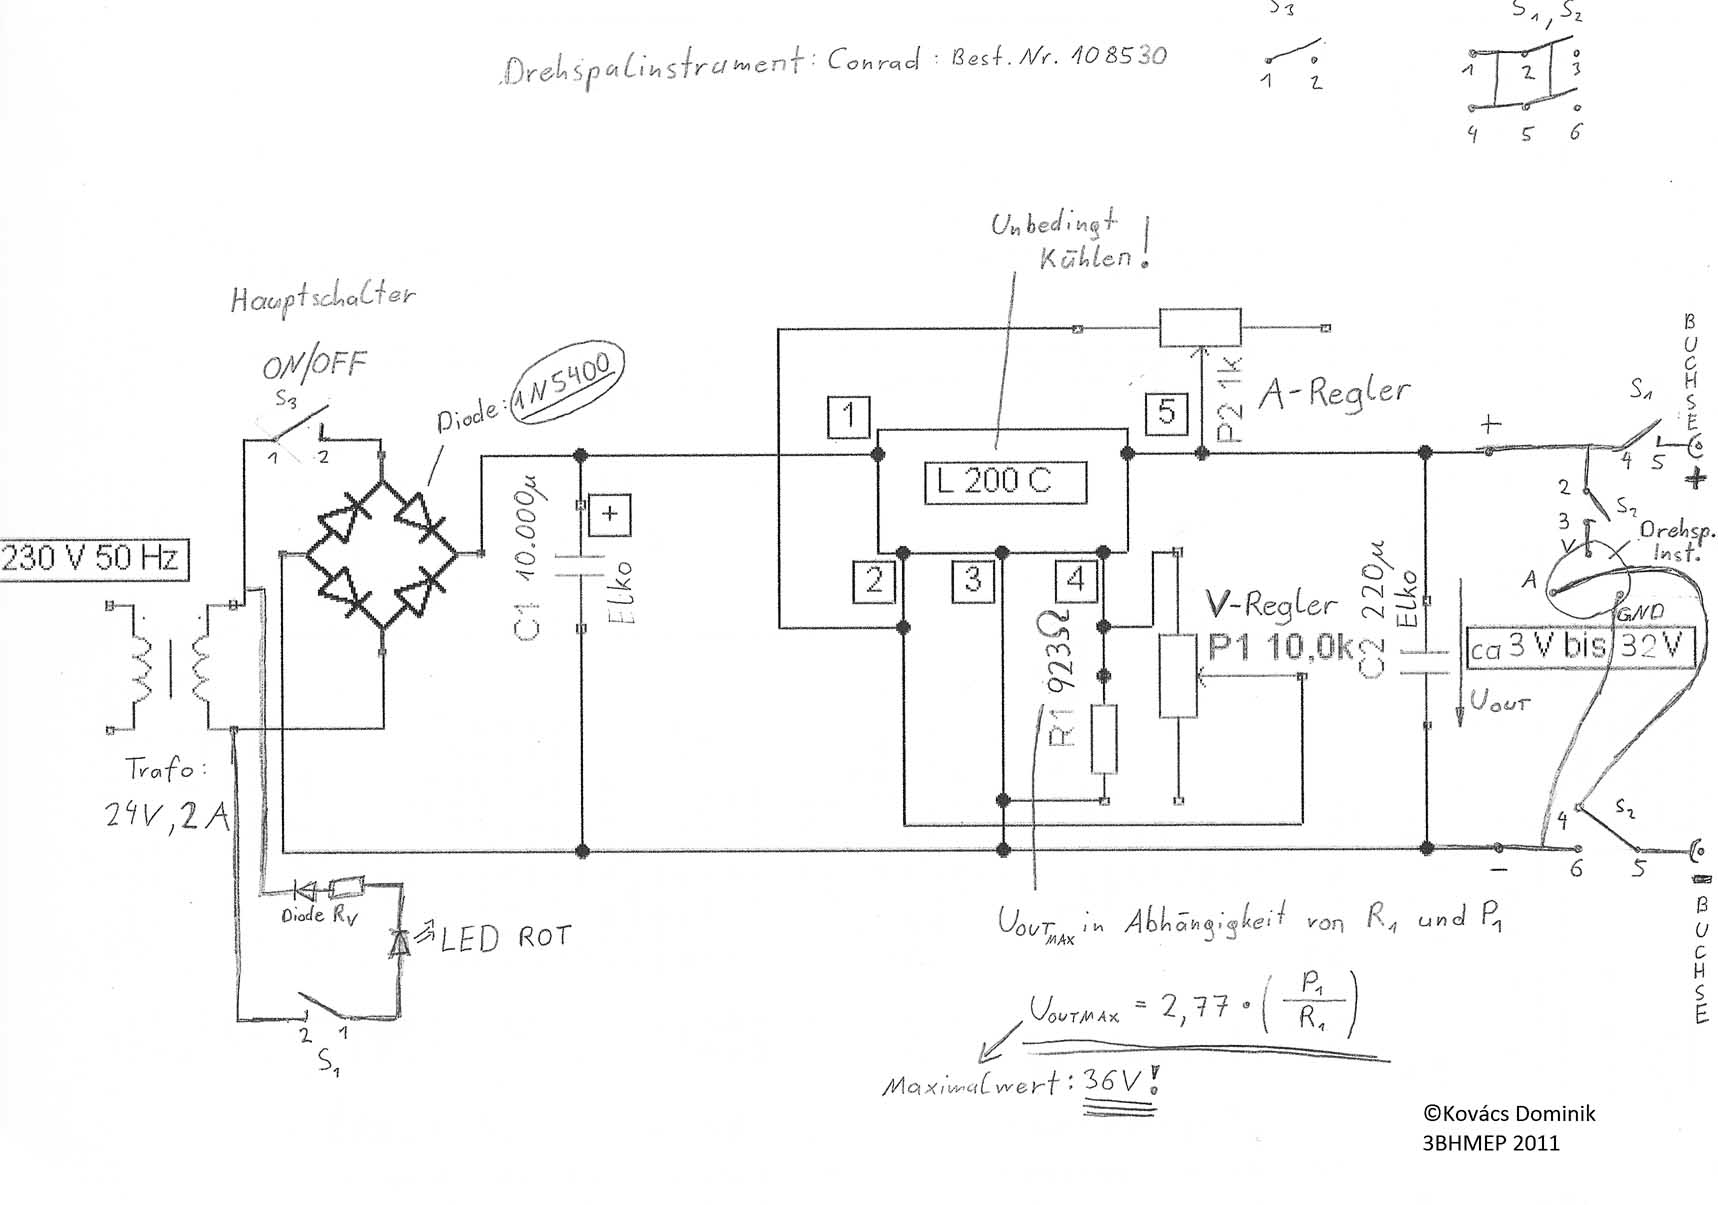 S3
S1, S2
Drehspalinstrument: Conrad: Best. Nr. 108530
1 2
1 2 3
4 5 6
Unbedingt
Kühlen!
Hauptschalter
ON/OFF
S3
1 2
Diode: 1N5400
BUCHSE
+
P2 1k
A-Regler
1
5
L 200 C
+
S1
4 5
2
S2
3
V
Drehsp.
Inst.
A
GND
230 V 50 Hz
C1 10.000µ
Elko
+
2
3
4
V-Regler
P1 10,0k
R1 923Ω
C2 220µ
Elko
ca 3 V bis 32V
UOUT
Trafo:
24V, 2A
4
S2
6 5
-
-
BUCHSE
Diode RV
LED ROT
2 1
S1
UOUTMAX in Abhängigkeit von R1 und P1
UOUTMAX = 2,77 · (P1/R1)
Maximalwert: 36V!
©Kovács Dominik
3BHMEP 2011